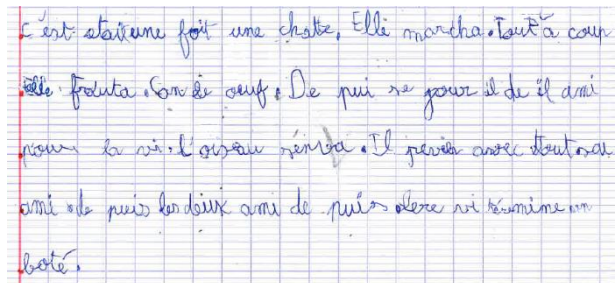 C'est etait une foit une chatte. Elle marcha. Tout à coup
elle frouta. son de oeuf. De pui se jour il de il ami
pour la vi. l'oiseau s'enva. Il revin avec tout sa
ami de puis les deux ami de puis vi termine en
boté.